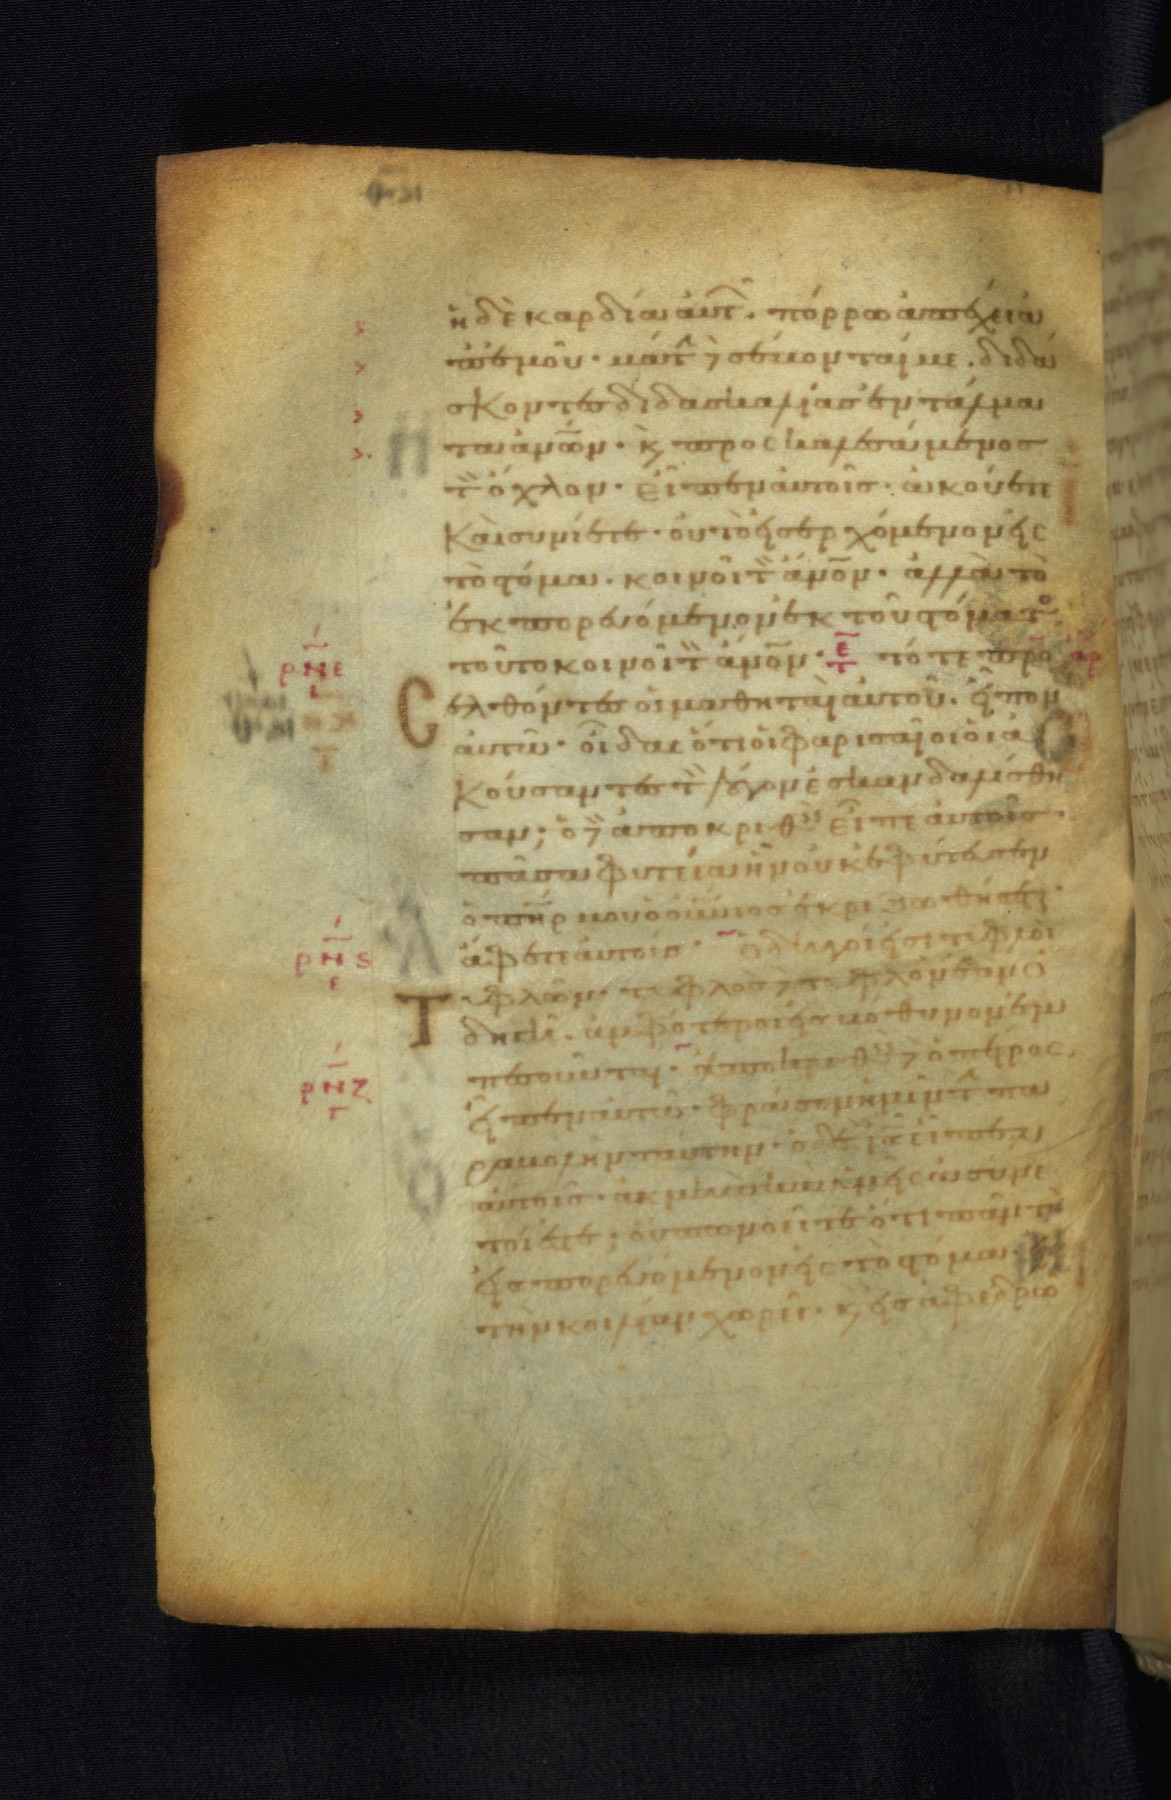 ἡ δὲ καρδία αὐτ̂. πόρρω ἀπέχει ἀ
π ἐμοῦ· μάτ̂ δὲ σέβονταί με. διδά
σκοντες διδασκαλίας ἐντάλμα
τα ἀν̅ων· κ̀ προσκαλεσάμενος
τ̀ ὄχλον· εἶπεν αὐτοῖς· ἀκούετε
καὶ συνίετε· οὐ τὸ εἰσερχόμενον εἰς
τὸ στόμα. κοινοῖ τ̀ ἄν̅ον· ἀλλὰ τὸ
ἐκπορευόμενον ἐκ τοῦ στόματο
τοῦτο κοινοῖ τ̀ ἄν̅ον· ε̅ τ τότε προ αρ
ρ̅ν̅ε̅
σελθόντες οἱ μαθηταὶ αὐτοῦ. εἶπον
αὐτῶ· οἶδας ὅτι οἱ φαρισαῖοι οἱ ἀ
κούσαντες τ̀ λόγον ἐσκανδαλίσθη
σαν; ὁ δὲ ἀποκριθ̀ εἶπε αὐτοῖς·
πᾶσα φυτεία ἣν οὐκ ἐφύτευσεν
ὁ π̅η̅ρ μου ὁ οὐ̅νιος ἐκριζωθήσεται·
ρ̅ν̅ς̅
ε
ἄφετε αὐτούς· ὁδηγοί εἰσι τυφλοὶ
τυφλῶν· τυφλὸς δὲ τυφλὸν ἐὰν ὁ
δηγῆ· ἀμφότεροι εἰς βόθυνον ἐμ
ρ̅ν̅ζ̅
πεσοῦνται· ἀποκριθ̀ δὲ ὁ πέτρος,
εἶπεν αὐτῶ· φράσον ἡμῖν τ̀ πα
ραβολὴν ταύτην· ὁ δὲ ι̅ς̅ εἶπεν
αὐτοῖς· ἀκμὴν καὶ ὑμεῖς ἀσύνε
τοί ἐστε; οὔπω νοεῖτε ὅτι πᾶν τὸ
εἰσπορευόμενον εἰς τὸ στόμα· εἰς
τὴν κοιλίαν χωρεῖ· κ̀ εἰς ἀφεδρῶ